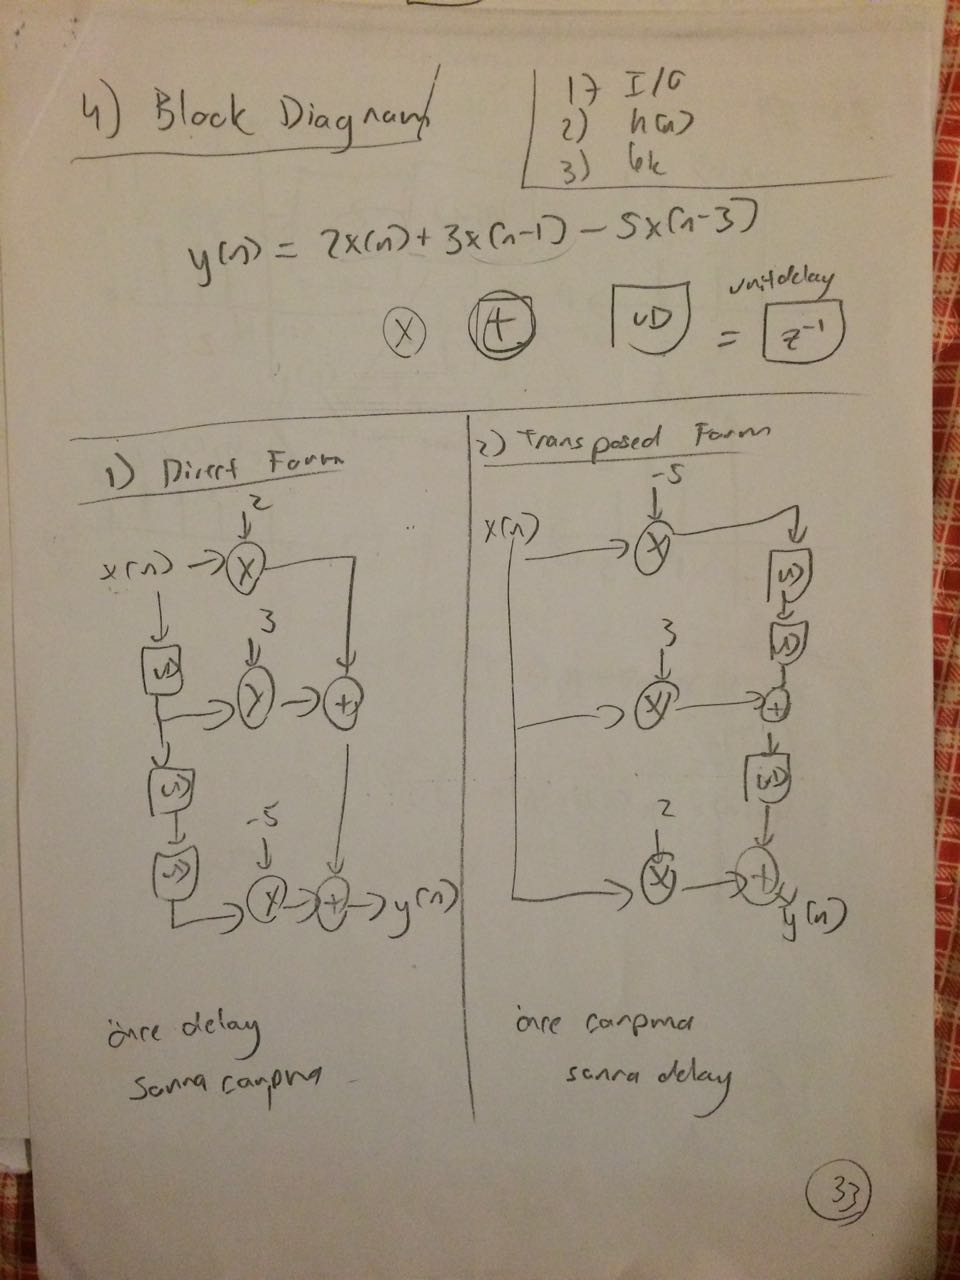 4) Block Diagram
1) I/O
2) h(n)
3) bk
y(n) = 2x(n) + 3x(n-1) - 5x(n-3)
unit delay
X + UD = z⁻¹
1) Direct Form
2
x(n) X
3
UD X +
UD
-5
UD X + y(n)
önce delay
sonra çarpma
2) Transposed Form
-5
x(n) X
UD
3 UD
X +
UD
2
X +
y(n)
önce çarpma
sonra delay
33